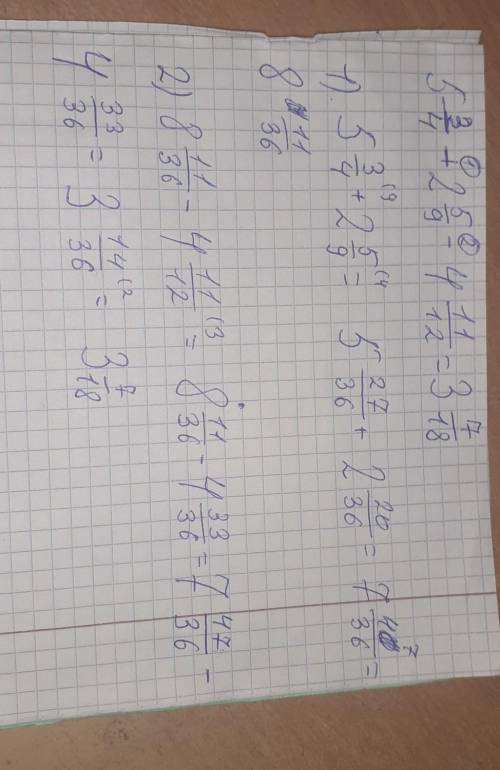 5 3/4 + 2 5/9 - 4 11/12 = 3 7/18
1) 5 3/4 (9 + 2 5/9 (4 = 5 27/36 + 2 20/36 = 7 47/36 =
8 11/36
2) 8 11/36 - 4 11/12 (3 = 8 11/36 - 4 33/36 = 7 47/36 -
4 33/36 = 3 14/36 (2 = 3 7/18